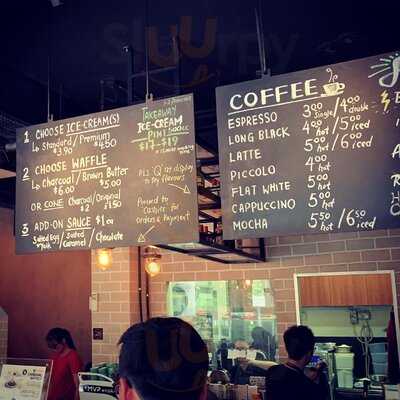 1 CHOOSE ICE-CREAM(S)
↳ Standard / Premium
$3.90 $4.50
2 CHOOSE WAFFLE
↳ Charcoal / Brown Butter
$6.00 $5.00
OR CONE Charcoal / Original
3 ADD-ON SAUCE $1.00
Salted Egg Yolk / Salted Caramel / Chocolate
TAKEAWAY
ICE-CREAM
PINT 500cc
$17-$19
PLS 'Q' at display
to try flavours
Proceed to
Cashier for
orders & Payment
COFFEE
Single / double
ESPRESSO 3.00 / 4.00
LONG BLACK 4.00 hot / 5.00 iced
LATTE 5.00 hot / 6.00 iced
PICCOLO 4.00 hot
FLAT WHITE 5.00 hot
CAPPUCCINO 5.00 hot
MOCHA 5.50 hot / 6.50 iced